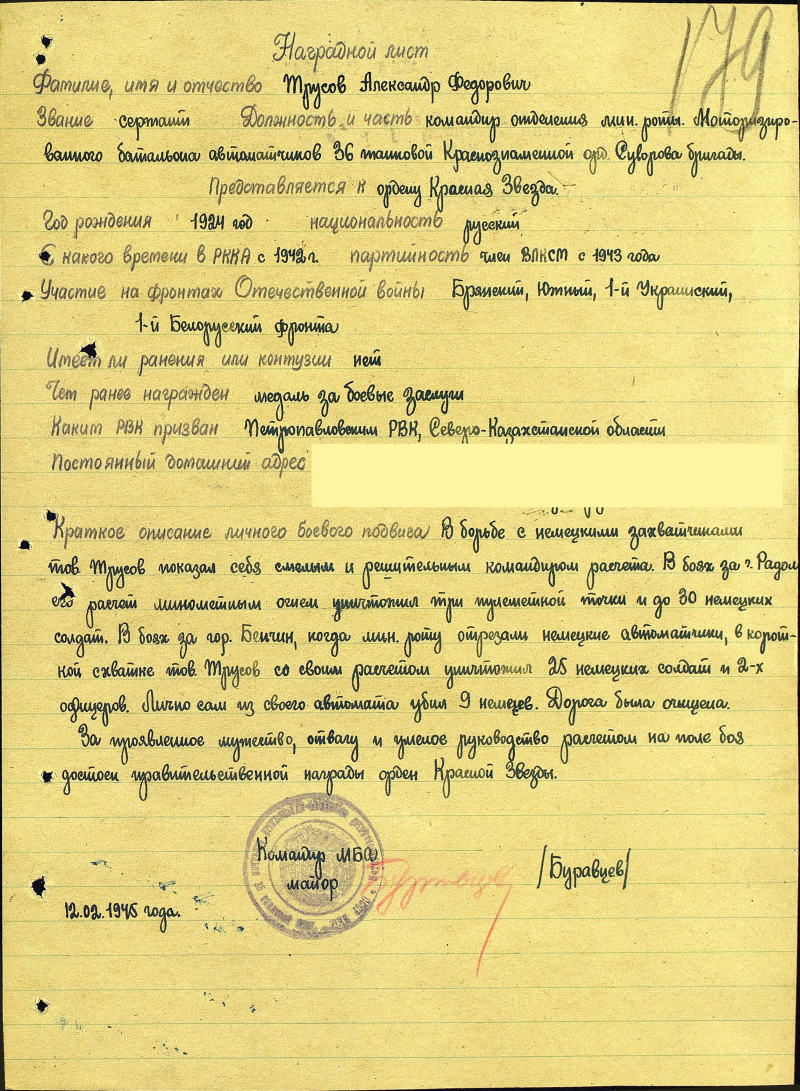 179
Наградной лист
Фамилие, имя и отчество Трусов Александр Федорович
Звание сержант Должность и часть командир отделения мин. роты. Моторизиро-
ванного батальона автоматчиков 36 танковой Краснознаменной орд. Суворова бригады.
Представляется к ордену Красная Звезда.
Год рождения 1924 год национальность русский
С какого времени в РККА с 1942 г. партийность член ВЛКСМ с 1943 года
Участие на фронтах Отечественной войны Брянский, Южный, 1-й Украинский,
1-й Белорусский фронта
Имеет ли ранения или контузии нет
Чем ранее награжден медаль за боевые заслуги
Каким РВК призван Петропавловским РВК, Северо-Казахстанской области
Постоянный домашний адрес
Краткое описание личного боевого подвига В борьбе с немецкими захватчиками
тов Трусов показал себя смелым и решительным командиром расчета. В боях за г. Радом
его расчет минометным огнем уничтожил три пулеметной точки и до 30 немецких
солдат. В боях за гор. Бенчин, когда мин. роту отрезали немецкие автоматчики, в корот-
кой схватке тов. Трусов со своим расчетом уничтожил 25 немецких солдат и 2-х
офицеров. Лично сам из своего автомата убил 9 немцев. Дорога была очищена.
За проявленное мужество, отвагу и умелое руководство расчетом на поле боя
достоен правительственной награды орден Красной Звезды.
Командир МБА
майор /Буравцев/
12.02.1945 года.